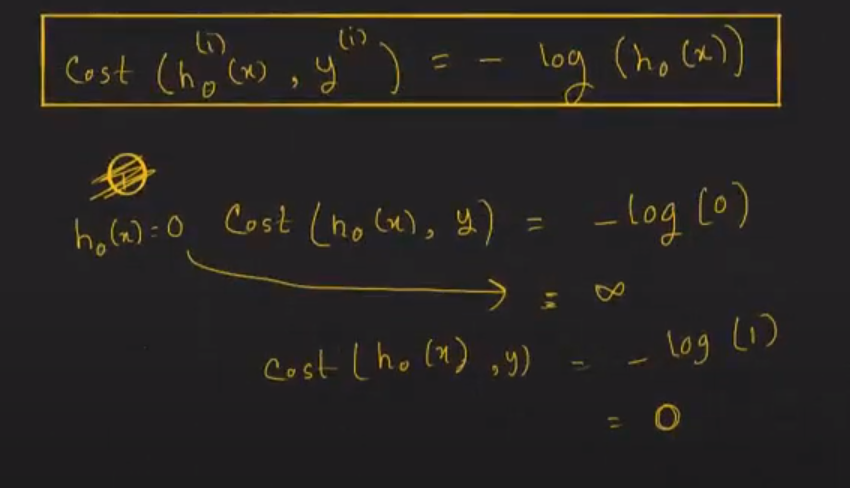 Cost (h₀⁽ⁱ⁾(x), y⁽ⁱ⁾) = - log (h₀(x))
h₀(x) = 0 Cost (h₀(x), y) = - log (0)
= ∞
Cost (h₀(x), y) = - log (1)
= 0